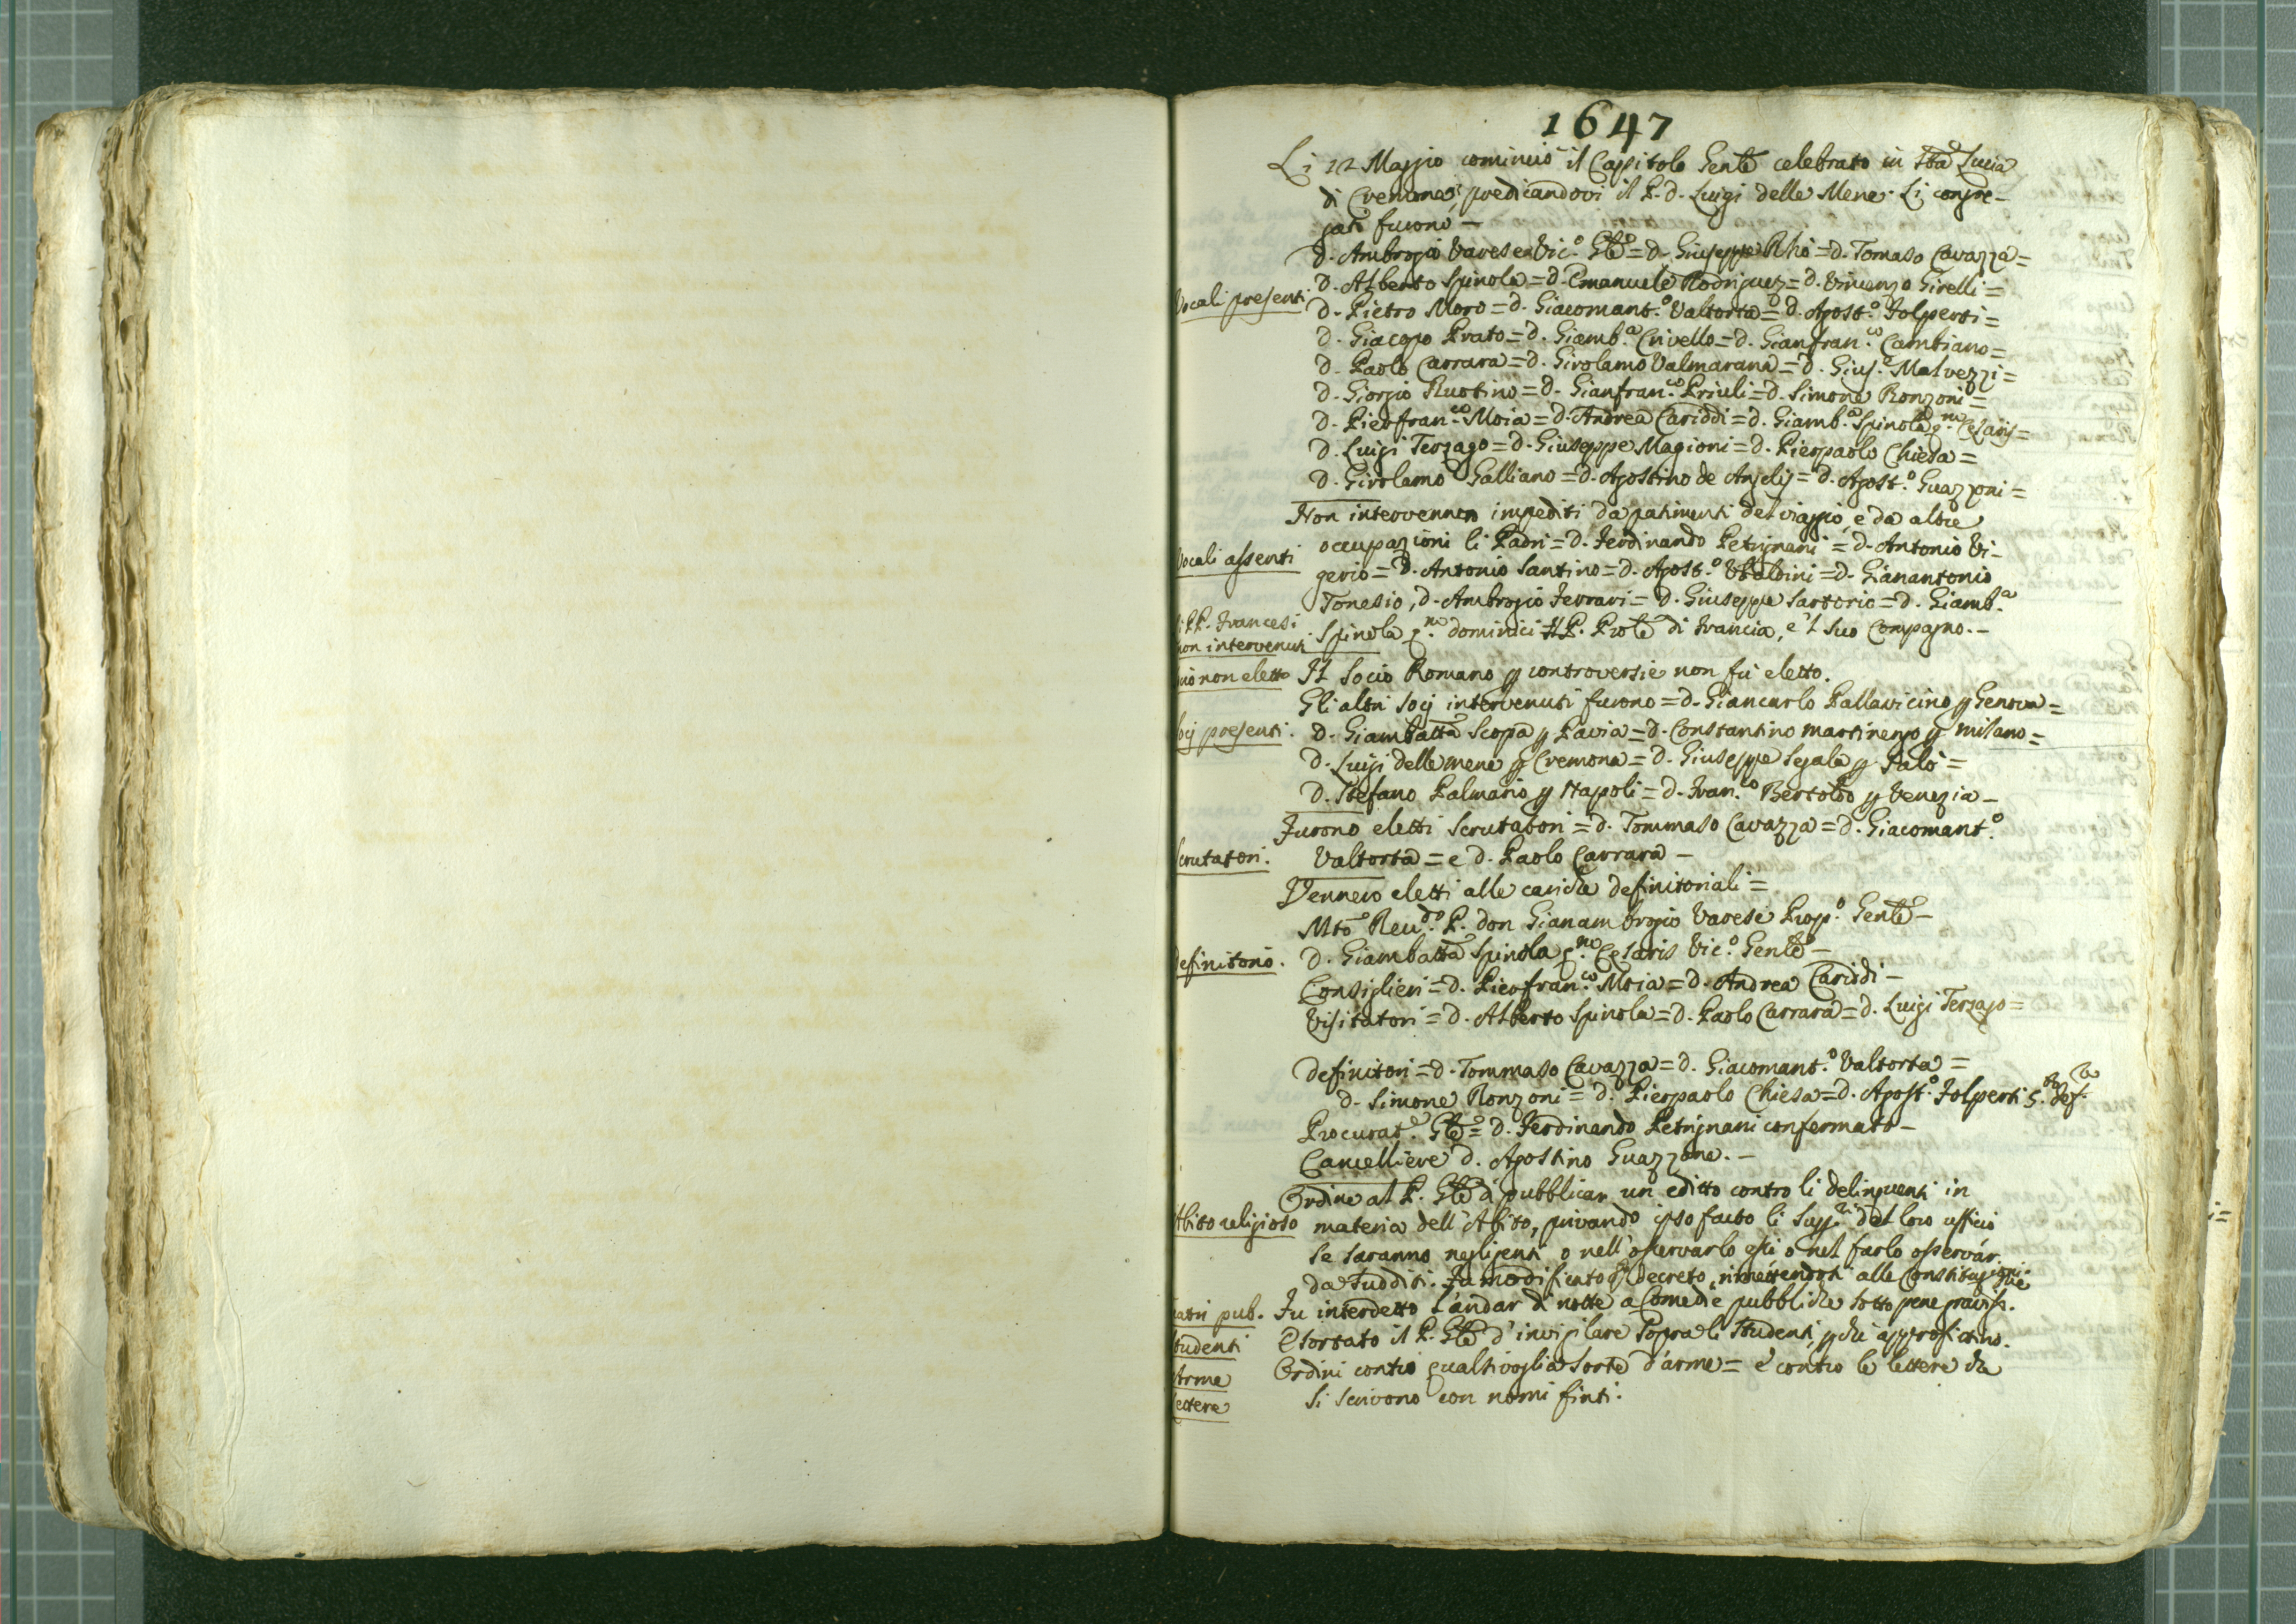 1647
Li 12 Maggio cominciò il Capitolo Gentē celebrato in Sta Lucia
di Cremona, predicandovi il P. d. Luigi delle Mene. Li congre-
gati furono -
d. Ambrogio Varese Vic.o Gtē = d. Giuseppe Rhò = d. Tomaso Cavazza =
Vocali presenti
d. Alberto Spinola = d. Emanuele Rodriguez = d. Vincenzo Girelli =
d. Pietro Moro = d. Giacomant.o Valtorta = d. Agost.o Folperti =
d. Giacopo Prato = d. Giamb.a Crivello = d. Gianfran.co Cambiano =
d. Paolo Carrara = d. Girolamo Valmarana = d. Gius.e Malvezzi =
d. Giorgio Rustino = d. Gianfran.co Priuli = d. Simone Ronzoni =
d. Pierfran.co Moia = d. Andrea Cariddi = d. Giamb.a Spinola q.m Cesaris =
d. Luigi Terzago = d. Giuseppe Magioni = d. Pierpaolo Chiesa =
d. Girolamo Galliano = d. Agostino de Angelis = d. Agost.o Guazzoni =
Non intervennero impediti da patimenti del viaggio, e da altre
Vocali assenti
occupazioni li Padri = d. Ferdinando Petrignani = d. Antonio Vi-
gerio = d. Antonio Santino = d. Agost.o Ubaldini = d. Gianantonio
Tonesio, d. Ambrogio Ferrari = d. Giuseppe Sartorio = d. Giamb.a
li PP. Francesi
non intervenuti
Spinola q.m Dominici Il P. Prole di Francia, e 'l suo Compagno. -
cio non eletto
Il Socio Romano p controversie non fù eletto.
Gli altri Socij intervenuti furono = d. Giancarlo Pallavicino p Genova =
ocij presenti.
d. Giambatta Scopa p Pavia = d. Constantino martinengo p milano =
d. Luigi delle mene p Cremona = d. Giuseppe Segala p Salò =
d. Stefano Palmario p Napoli = d. Fran.co Bertoldo p Venezia -
Furono eletti Scrutatori = d. Tommaso Cavazza = d. Giacomant.o
Scrutatori.
Valtorta = e d. Paolo Carrara -
Vennero eletti alle cariche definitoriali =
Mto Reu.do P. don Gianambrogio Varese Prop.o Gentē -
definitorio.
d. Giambatta Spinola q.m Cesaris Vic.o Gentē -
Consiglieri = d. Pierfran.co Moia = d. Andrea Cariddi -
Visitatori = d. Alberto Spinola = d. Paolo Carrara = d. Luigi Terzago =
definitori = d. Tommaso Cavazza = d. Giacomant.o Valtorta =
d. Simone Ronzoni = d. Pierpaolo Chiesa = d. Agost.o Folperti 5.to def.re
Procurat.e Gtē = d. Ferdinando Petrignani confermato -
Cancelliere d. Agostino Guazzone. -
Ordine al P. Gtē di pubblicar un editto contro li delinquenti in
Abito religioso
materia dell'Abito, privando ipso facto li Supp.ri del loro ufficio
se saranno negligenti o nell'osservarlo essi o nel farlo osservar
da sudditi. Fu modificato q.to decreto, rimettendosi alle Constituzioni
eatri pub.
Fu interdetto l'andar di notte a Comedie pubbliche sotto pene graviss.me
Studenti
Esortato il P. Gtē d'invigilare sopra li Studenti, p che approfittino.
Arme
Ordini contro qualsivoglia sorte d'arme = e contro le lettere che
Lettere
si scrivono con nomi finti.